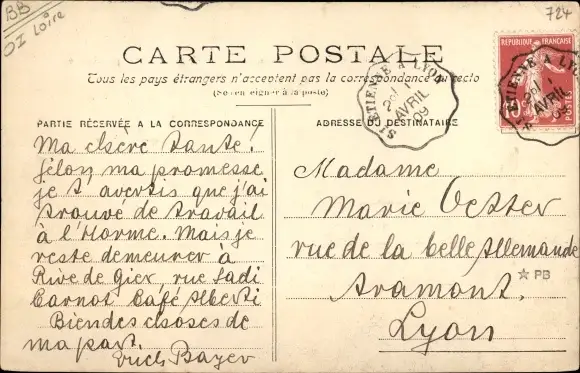 BB
OI Loire
724
CARTE POSTALE
Tous les pays étrangers n'acceptent pas la correspondance au recto
(Se renseigner à la poste)
PARTIE RÉSERVÉE A LA CORRESPONDANCE
Ma chère tante!
Selon ma promesse
je t'avertis que j'ai
trouvé de travail
à l'Horme. Mais je
reste demeurer à
Rive de Gier, rue Sadi
Carnot Café Alberti
Bien des choses de
ma part.
Bayer
ADRESSE DU DESTINATAIRE
Madame
Marie Oester
rue de la belle Allemande
Aramont.
Lyon
PB
ST ETIENNE A LYON
AVRIL
09
REPUBLIQUE FRANÇAISE
10
POSTES
ETIENNE A LY
AVRIL